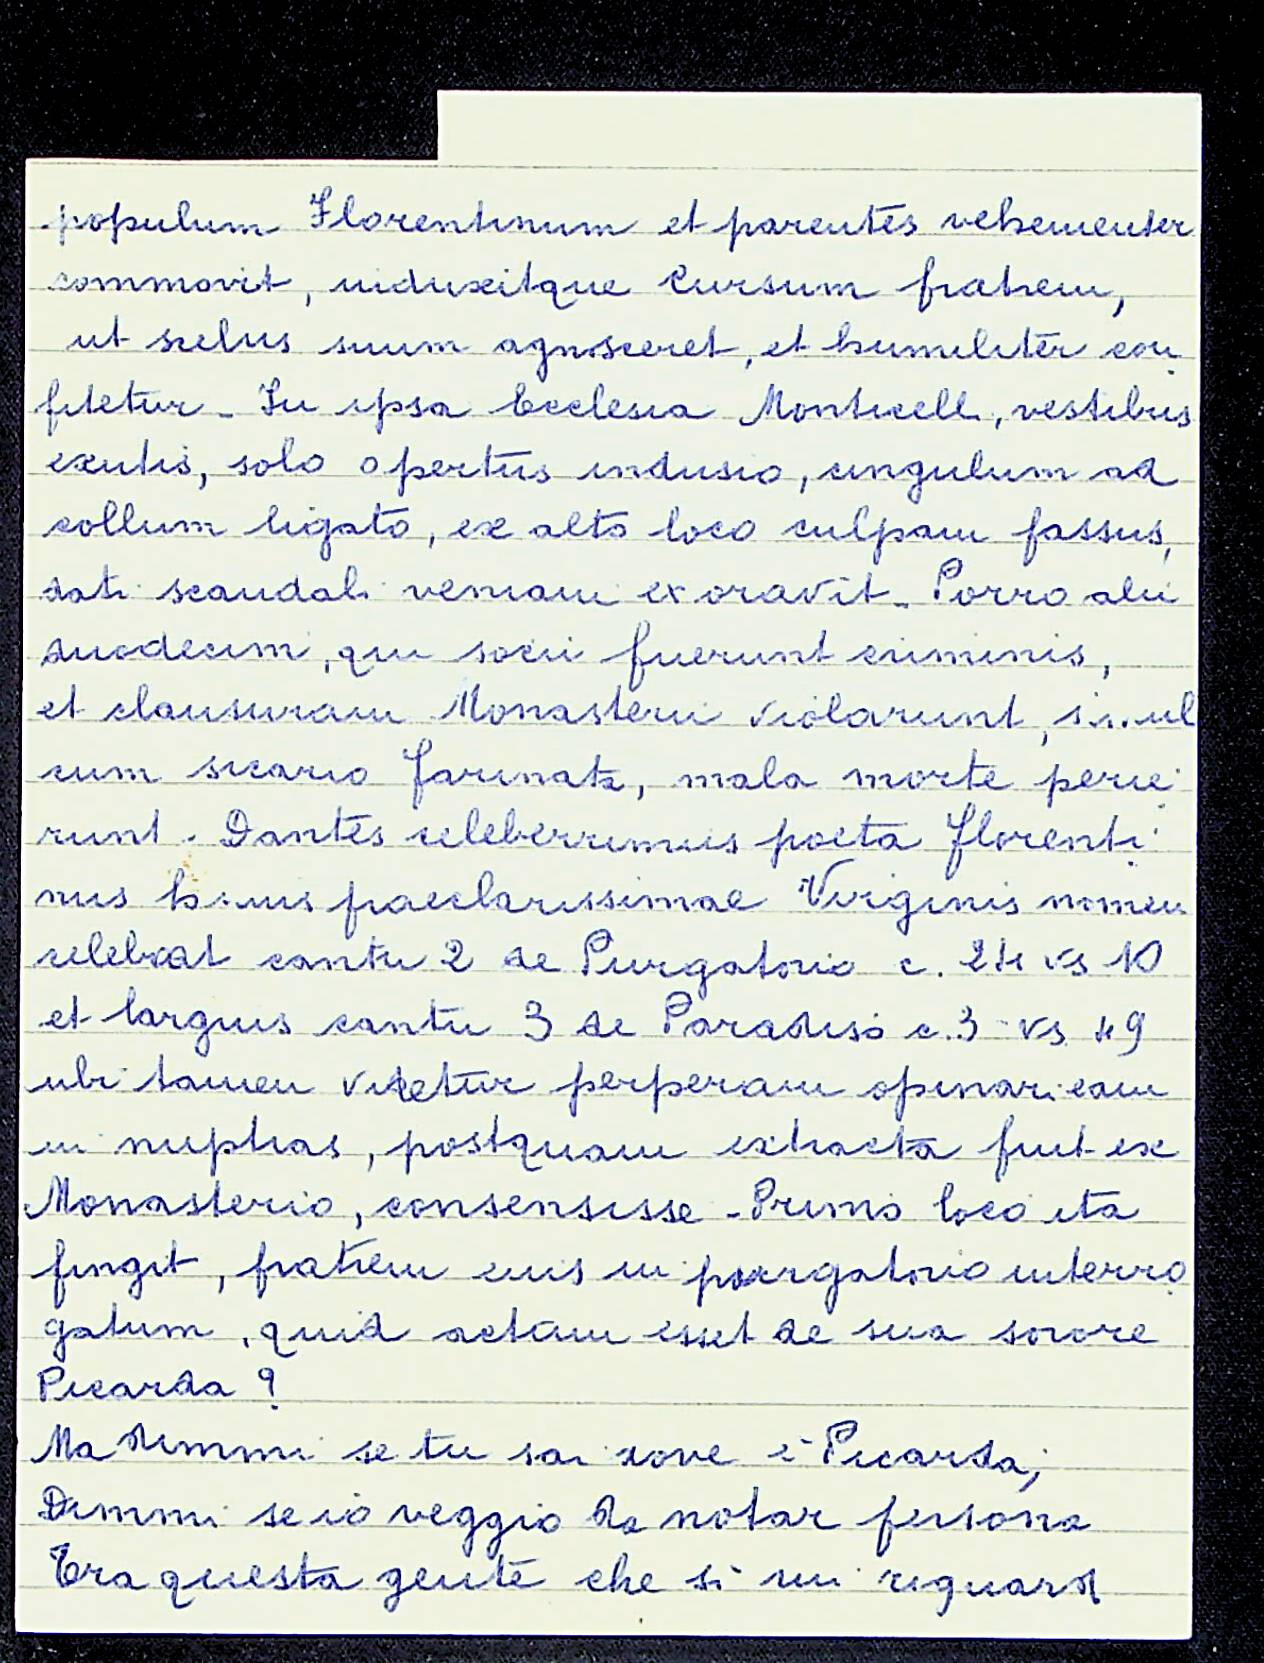 populum Florentinum et parentes vehementer
commovit, induxitque Cursum fratrem,
ut scelus suum agnosceret, et humiliter con
fitetur - In ipsa Ecclesia Monticelli, vestibus
exutis, solo opertus indusio, cingulum ad
collum ligato, ex alto loco culpam fassus,
dati scandali veniam exoravit - Porro alii
duodecim, qui socii fuerunt criminis,
et clausuram Monasterii violarunt, simul
cum sicario Farinata, mala morte perie
runt. Dantes celeberrimus poeta Florenti
nus huius praeclarissimae Virginis nomen
celebrat cantu 2 de Purgatorio c. 24 vs 10
et largius cantu 3 de Paradiso c. 3 - vs 49
ubi tamen videtur perperam opinari eam
in nuptias, postquam extracta fuit ex
Monasterio, consensisse - Primo loco ita
fingit, fratrem eius in purgatorio interro
gatum, quid actum esset de sua sorore
Picarda?
Ma dimmi se tu sai dove è Picarda;
Dimmi se io veggio da notar persona
Tra questa gente che sì mi riguard